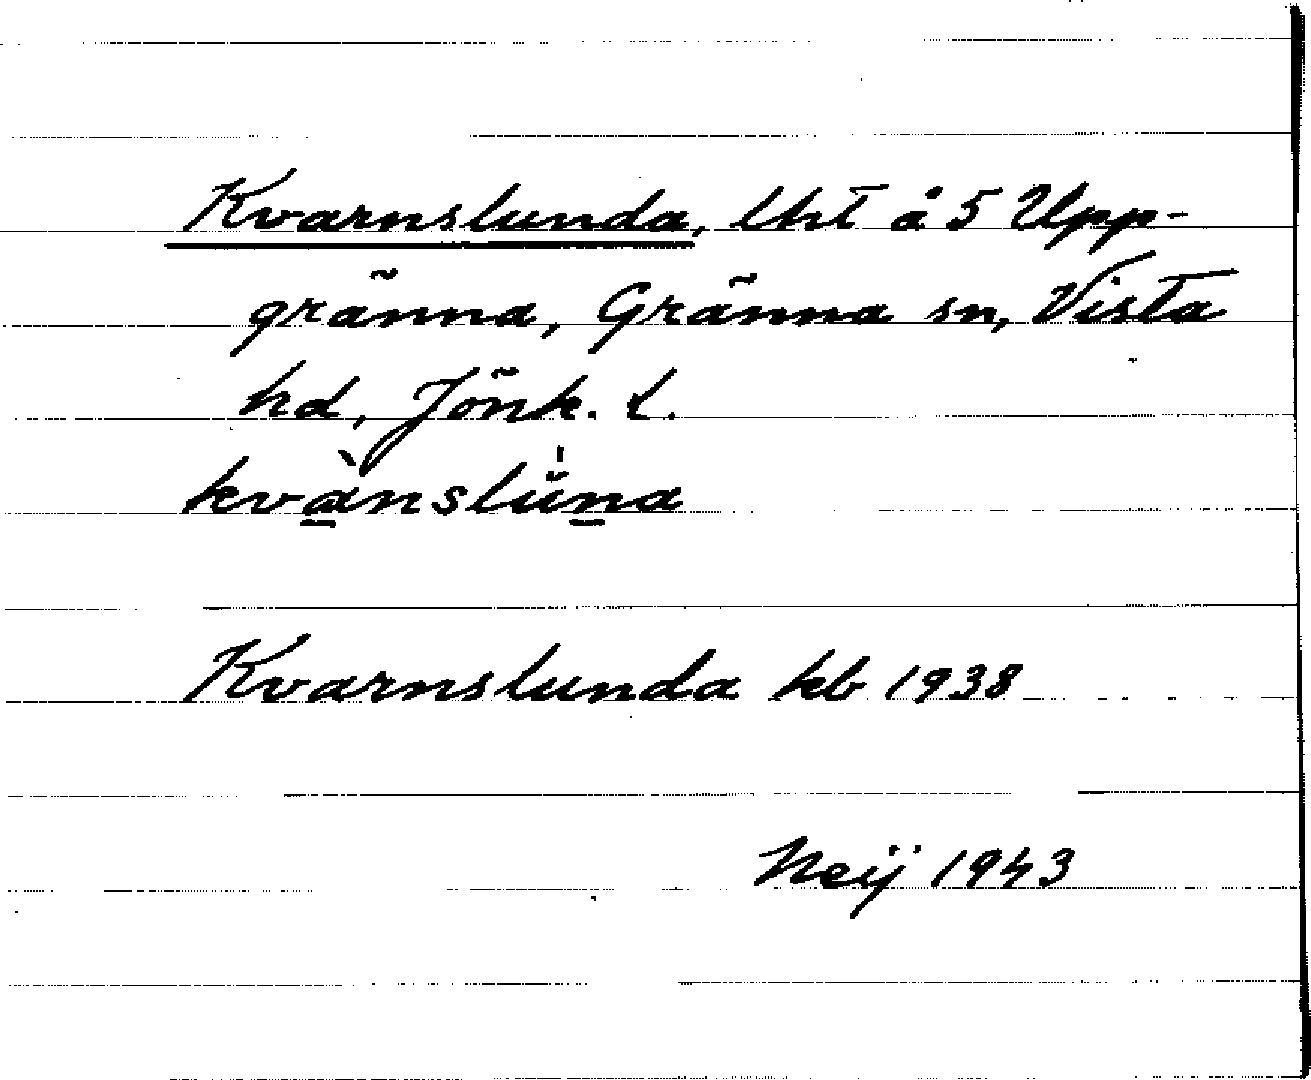 Kvarnslunda, lht å 5 Upp-
gränna, Gränna sn, Vista
hd, Jönk. L.
kvànslu̍na
Kvarnslunda kb 1938
Neij 1943